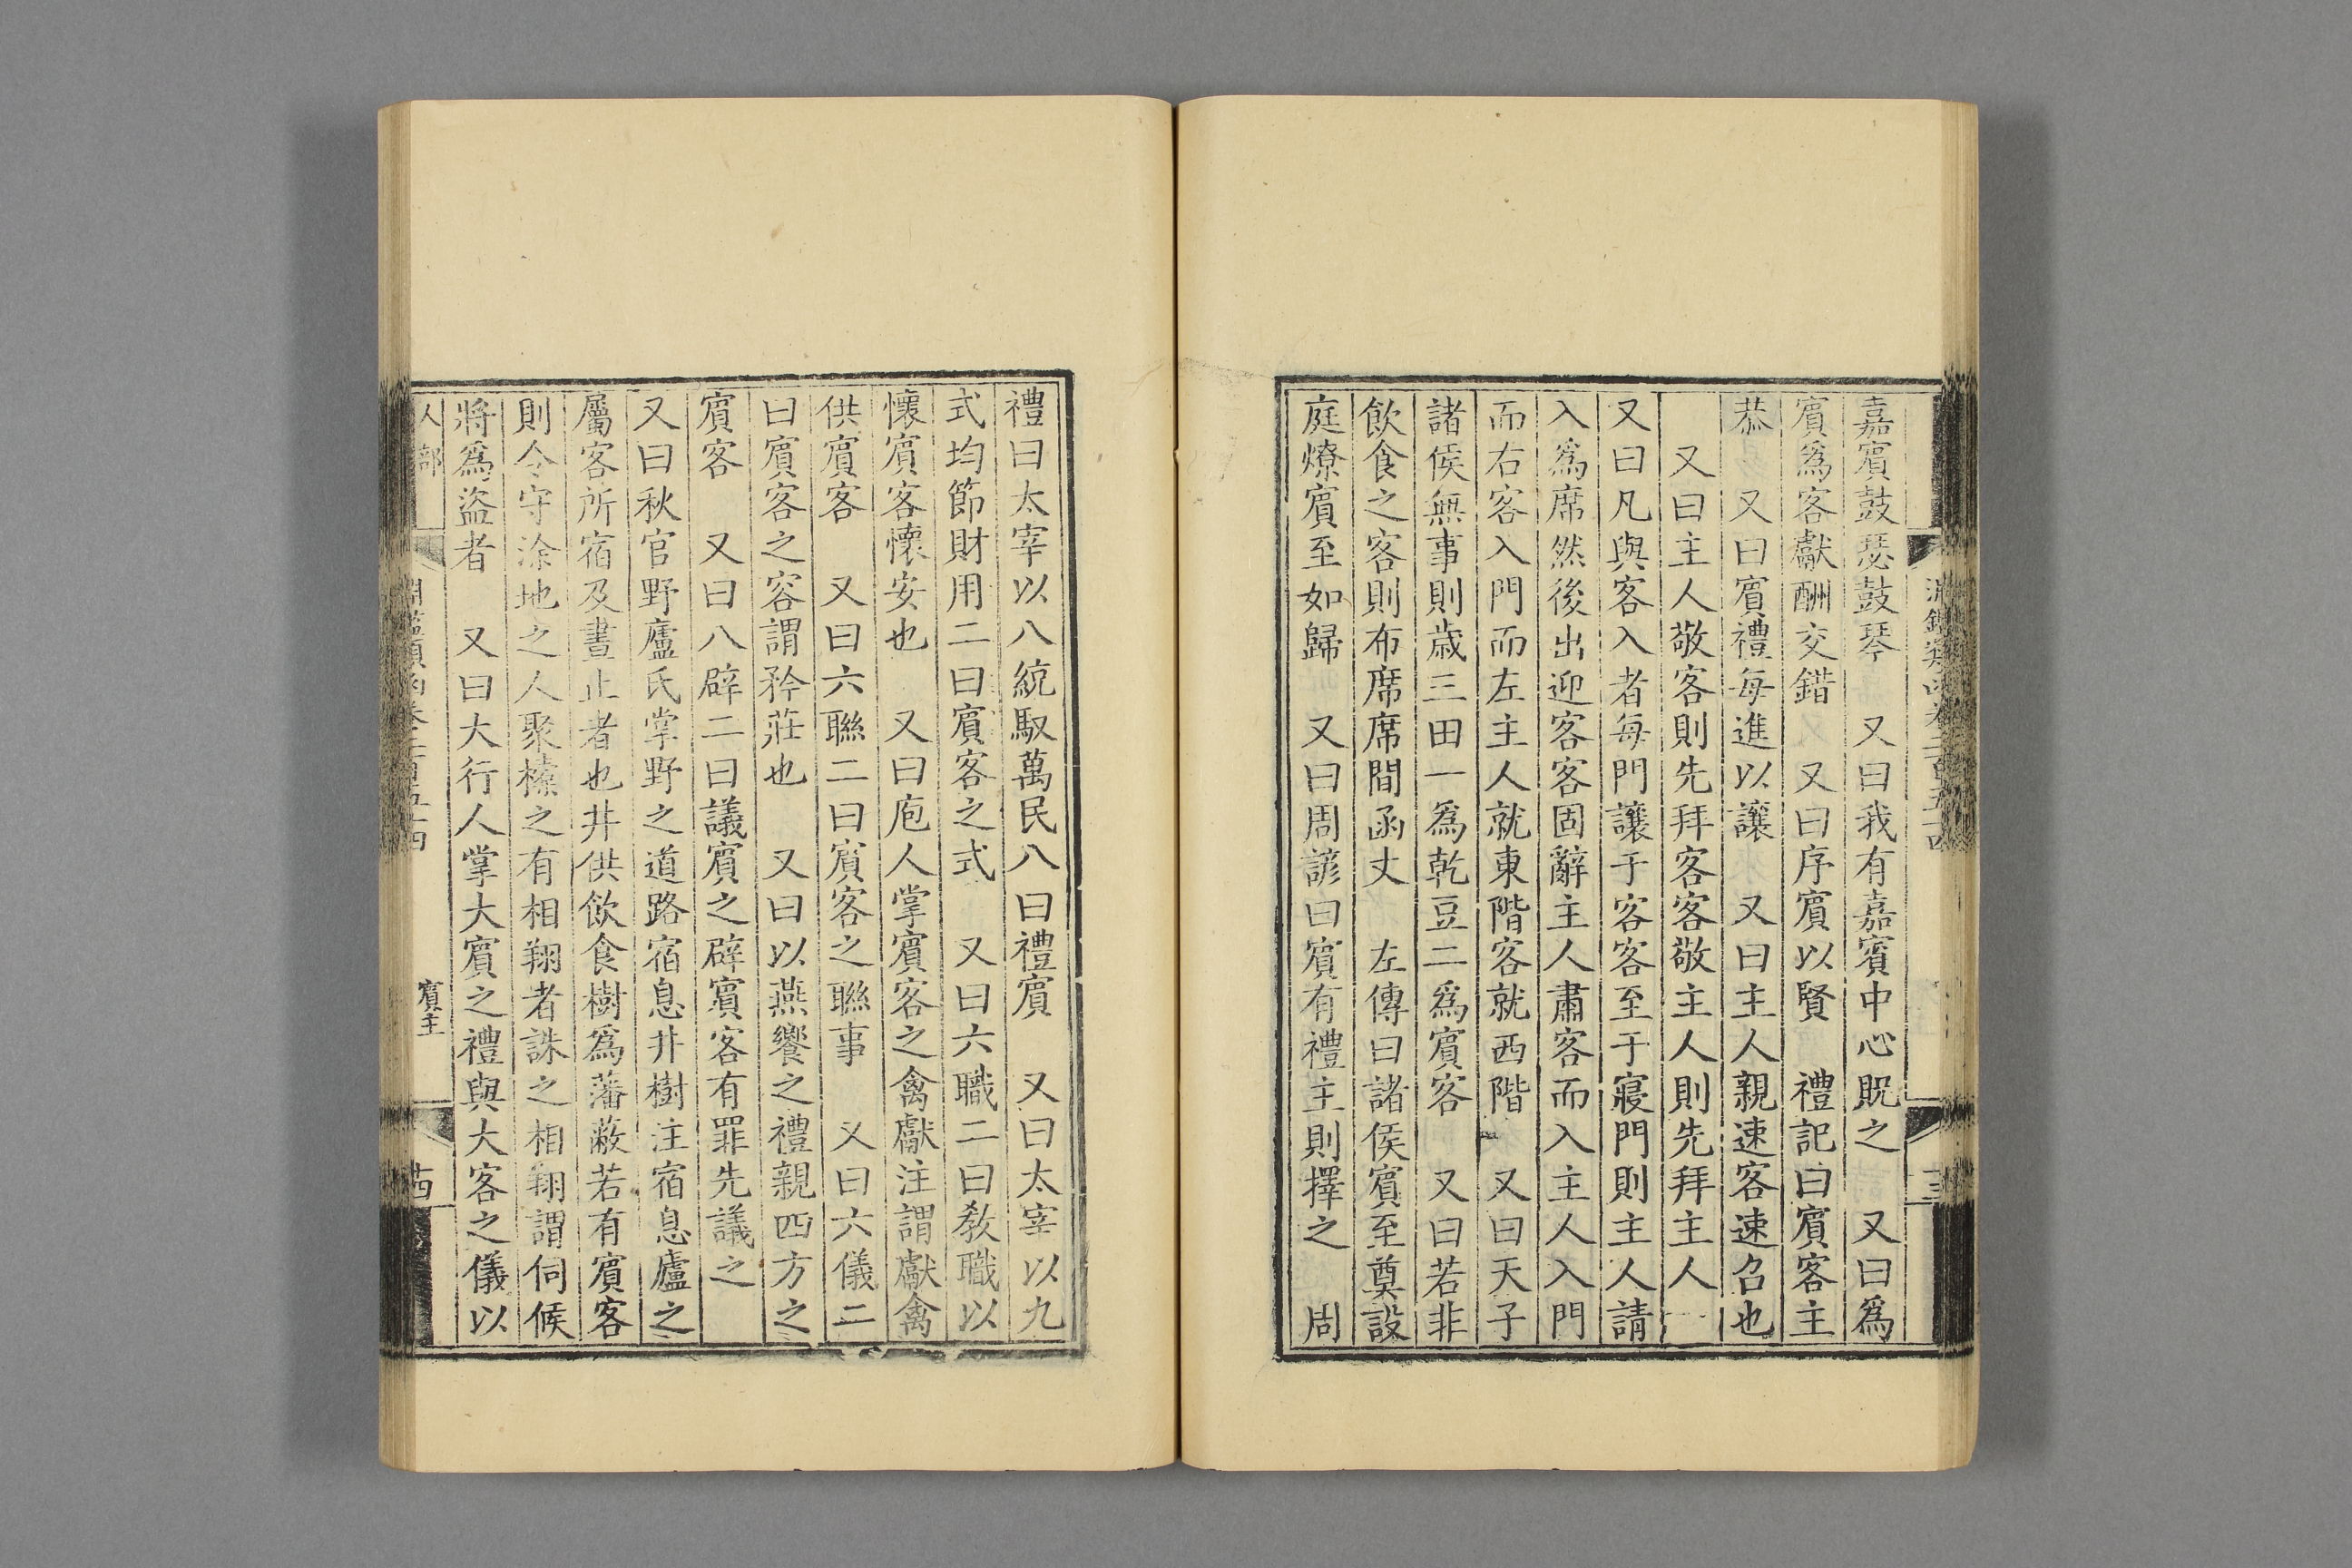 嘉賓鼓瑟鼓琴　又曰我有嘉賓中心貺之　又曰爲
賓爲客獻酬交錯　又曰序賓以賢　禮記曰賓客主
恭　又曰賓禮每進以讓　又曰主人親速客速召也
又曰主人敬客則先拜客客敬主人則先拜主人
又曰凡與客入者每門讓于客客至于寢門則主人請
入爲席然後出迎客客固辭主人肅客而入主人入門
而右客入門而左主人就東階客就西階　又曰天子
諸侯無事則歲三田一爲乾豆二爲賓客　又曰若非
飲食之客則布席席間函丈　左傳曰諸侯賓至奠設
庭燎賓至如歸　又曰周諺曰賓有禮主則擇之　周
禮曰太宰以八統馭萬民八曰禮賓　又曰太宰以九
式均節財用二曰賓客之式　又曰六職二曰教職以
懷賓客懷安也　又曰庖人掌賓客之禽獻注謂獻禽
供賓客　又曰六聯二曰賓客之聯事　又曰六儀二
曰賓客之容謂矜莊也　又曰以燕饗之禮親四方之
賓客　又曰八辟二曰議賓之辟賓客有罪先議之
又曰秋官野廬氏掌野之道路宿息井樹注宿息廬之
屬客所宿及晝止者也井供飲食樹爲藩蔽若有賓客
則令守涂地之人聚㯡之有相翔者誅之相翔謂伺候
將爲盜者　又曰大行人掌大賓之禮與大客之儀以
人部
淵鑑類函卷二百五十四
賓主